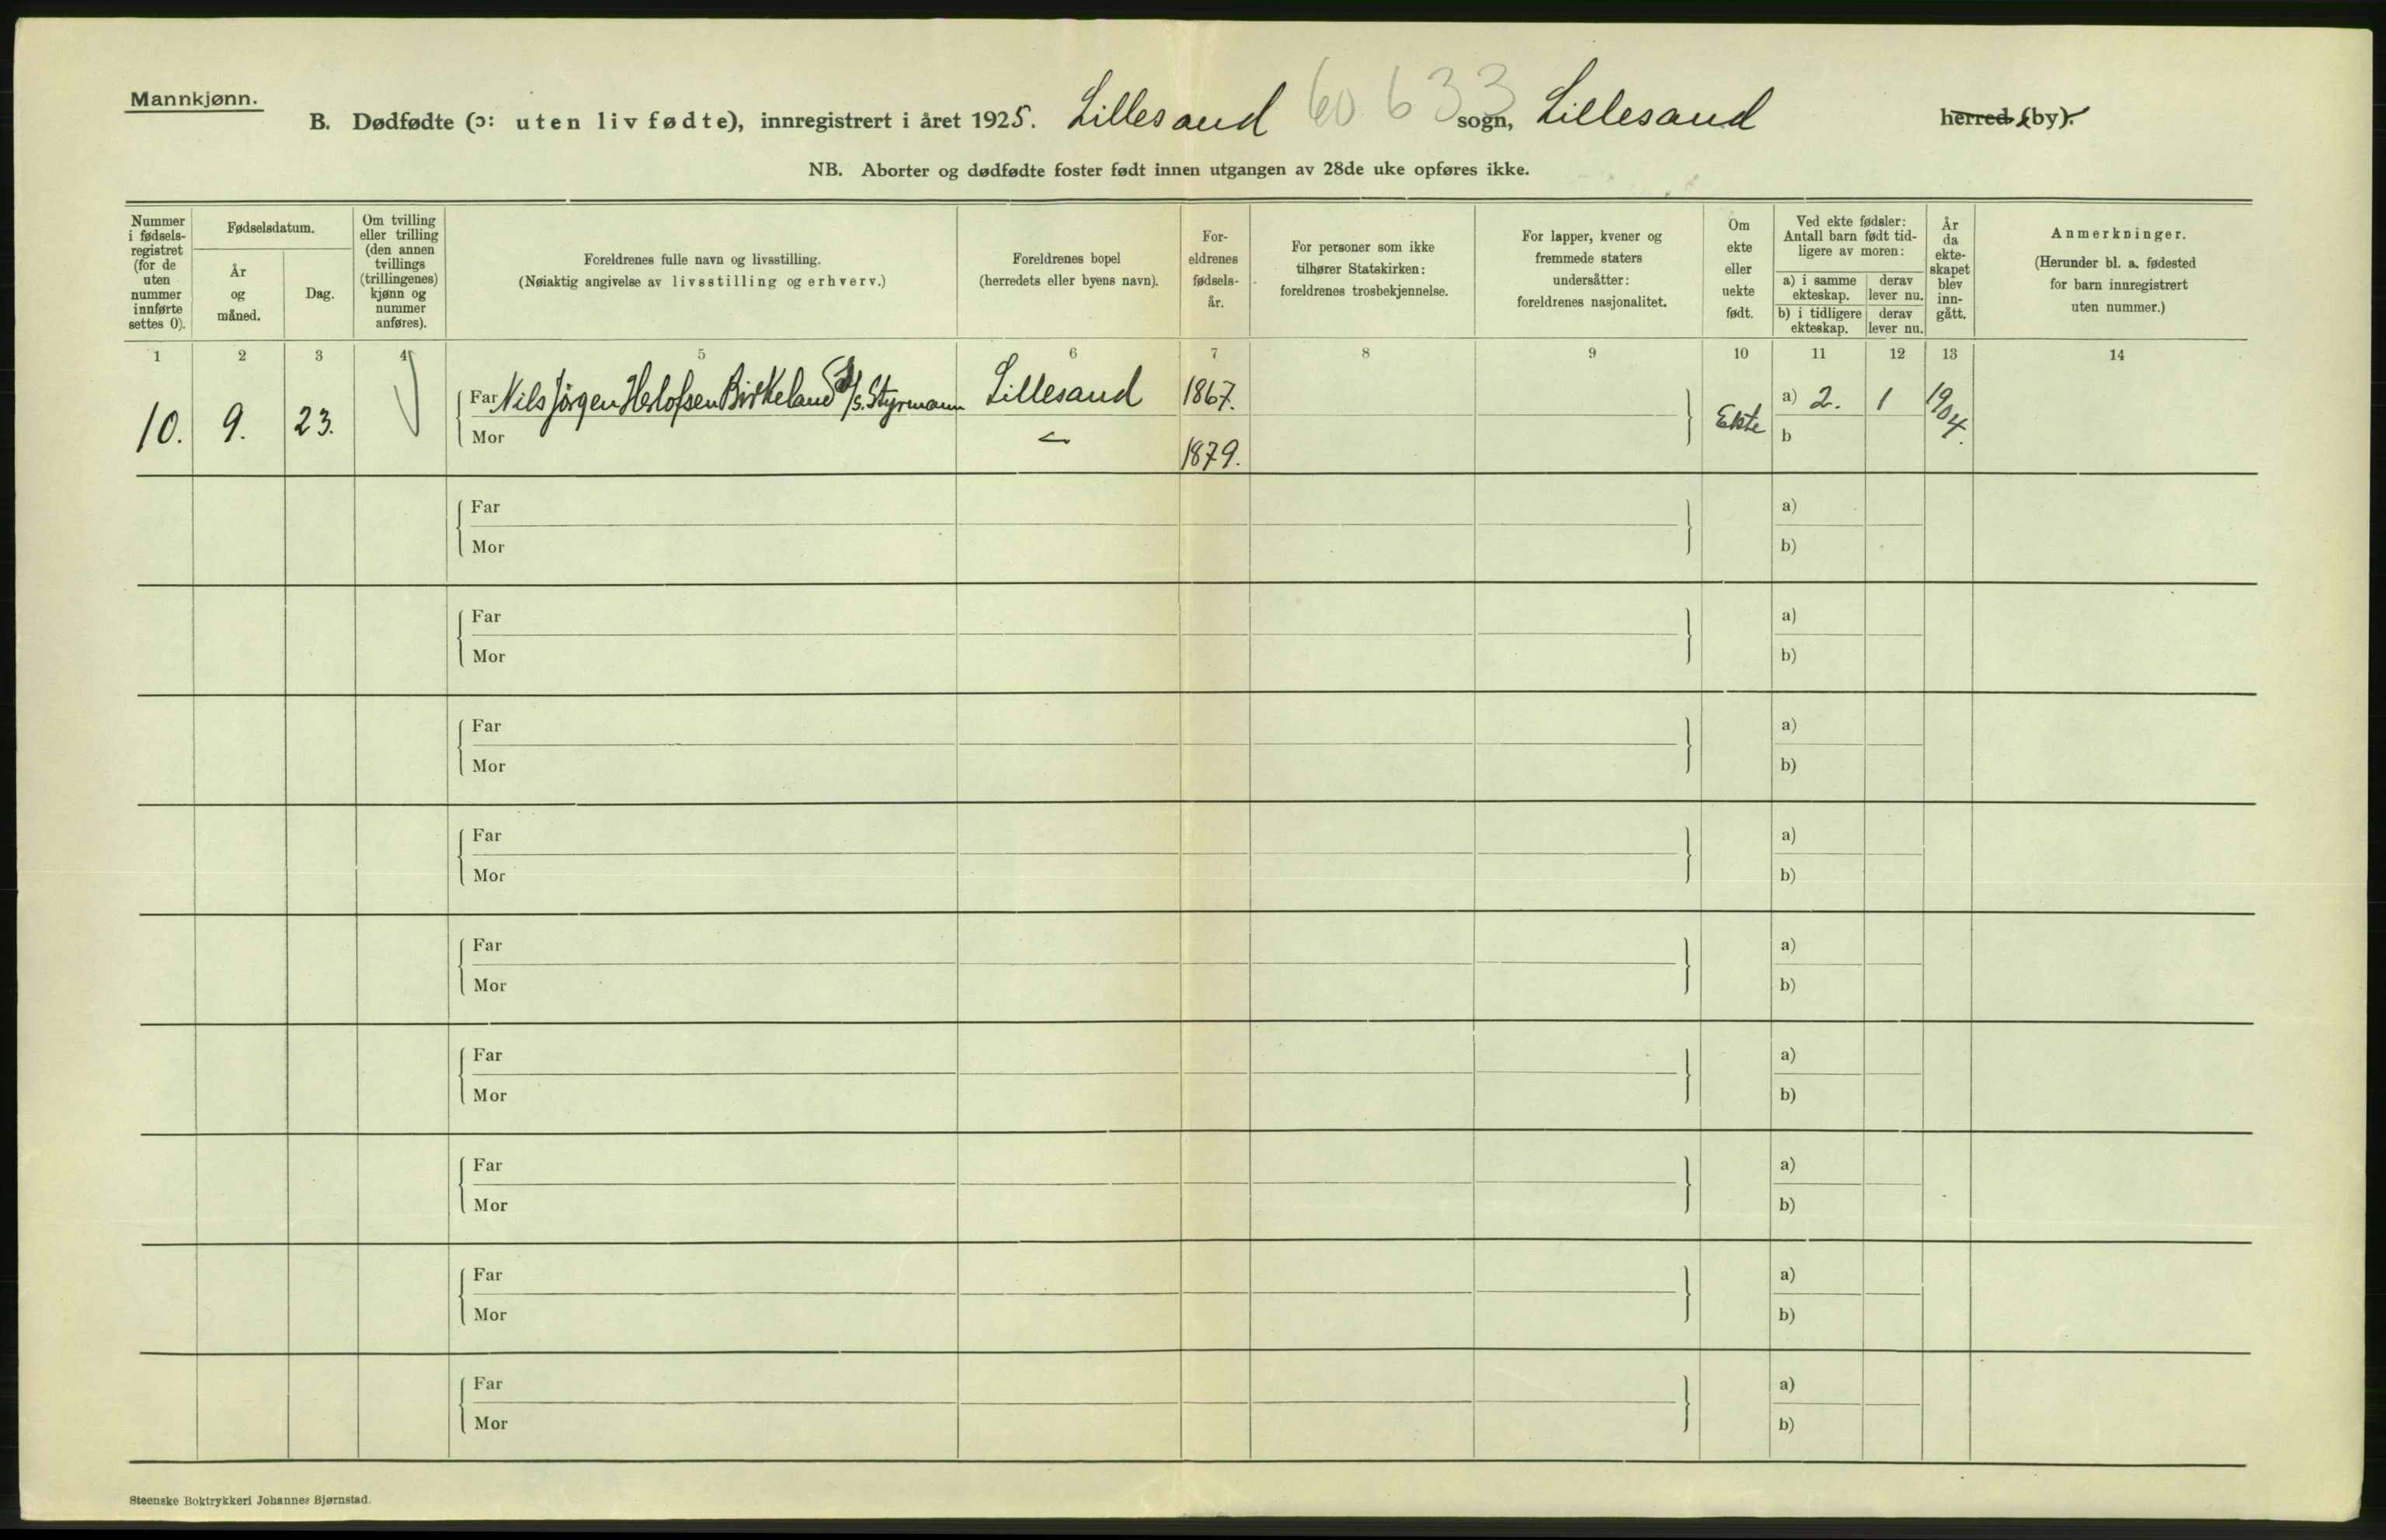 Mannkjønn.
B. Dødfødte (ɔ: uten liv fødte), innregistrert i året 1925. Lillesand 60 633 sogn, Lillesand herred (by).
NB. Aborter og dødfødte foster født innen utgangen av 28de uke opføres ikke.
Nummer i fødsels-registret (for de uten nummer innførte settes 0).
Fødselsdatum.
År og måned.
Dag.
Om tvilling eller trilling (den annen tvillings (trillingenes) kjønn og nummer anføres).
Foreldrenes fulle navn og livsstilling.
(Nøiaktig angivelse av livsstilling og erhverv.)
Foreldrenes bopel
(herredets eller byens navn).
For-eldrenes fødsels-år.
For personer som ikke tilhører Statskirken: foreldrenes trosbekjennelse.
For lapper, kvener og fremmede staters undersåtter: foreldrenes nasjonalitet.
Om ekte eller uekte født.
Ved ekte fødsler: Antall barn født tid-ligere av moren:
a) i samme ekteskap.
derav lever nu.
b) i tidligere ekteskap.
derav lever nu.
År da ekte-skapet blev inn-gått.
Anmerkninger.
(Herunder bl. a. fødested for barn innregistrert uten nummer.)
1 2 3 4 5 6 7 8 9 10 11 12 13 14
10. 9. 23. Far Nils Jörgen Herlofsen Birkeland /s. Styrmann Lillesand 1867. Ekte a) 2. 1 1904.
Mor 1879. b
Far a)
Mor b)
Far a)
Mor b)
Far a)
Mor b)
Far a)
Mor b)
Far a)
Mor b)
Far a)
Mor b)
Far a)
Mor b)
Far a)
Mor b)
Far a)
Mor b)
Steenske Boktrykkeri Johannes Bjørnstad.